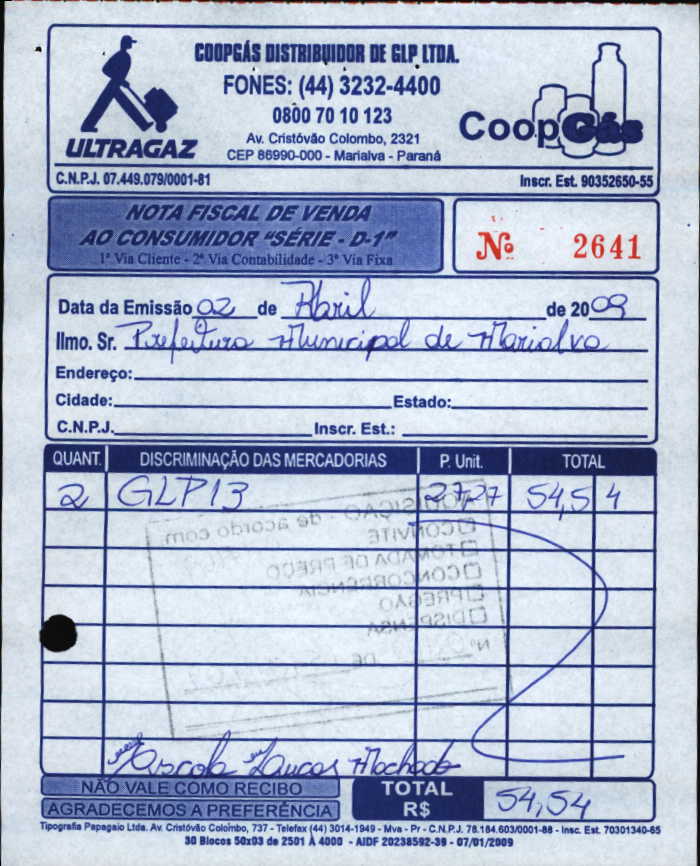 COOPGÁS DISTRIBUIDOR DE GLP LTDA.
FONES: (44) 3232-4400
0800 70 10 123
Av. Cristóvão Colombo, 2321
CEP 86990-000 - Marialva - Paraná
ULTRAGAZ
CoopGás
C.N.P.J. 07.449.079/0001-81
Inscr. Est. 90352650-55
NOTA FISCAL DE VENDA
AO CONSUMIDOR "SÉRIE - D-1"
1ª Via Cliente - 2ª Via Contabilidade - 3ª Via Fixa
Nº 2641
Data da Emissão 02 de Abril de 2009
Ilmo. Sr. Prefeitura Municipal de Marialva
Endereço:
Cidade: Estado:
C.N.P.J. Inscr. Est.:
QUANT. DISCRIMINAÇÃO DAS MERCADORIAS P. Unit. TOTAL
2 GLP13 27,27 54,54
REQUISIÇÃO - de acordo com
CONVITE
TOMADA DE PREÇO
CONCORRÊNCIA
PREGÃO
DISPENSA
Nº DE
Escola Lucas Machado
NÃO VALE COMO RECIBO
AGRADECEMOS A PREFERÊNCIA
TOTAL R$ 54,54
Tipografia Papagaio Ltda. Av. Cristóvão Colombo, 737 - Telefax (44) 3014-1949 - Mva - Pr - C.N.P.J. 78.184.603/0001-88 - Insc. Est. 70301340-65
30 Blocos 50x03 de 2501 À 4000 - AIDF 20238592-39 - 07/01/2009